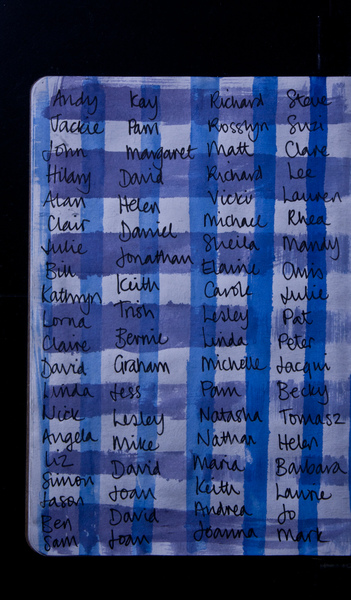 Andy Kay Richard Steve
Jackie Pam Rosslyn Suzi
John Margaret Matt Clare
Hilary David Richard Lee
Alan Helen Vicki Lauren
Clair Daniel Michael Rhea
Julie Jonathan Sheila Mandy
Bill Keith Elaine Chris
Kathryn Trish Carole Julie
Lorna Bernie Lesley Pat
Claire Graham Linda Peter
David Jess Michelle Jacqui
Linda Lesley Pam Becky
Nick Mike Natasha Tomasz
Angela David Nathan Helen
Liz Joan Maria Barbara
Simon David Keith Laurie
Jason Joan Andrea Jo
Ben Joanna Mark
Sam